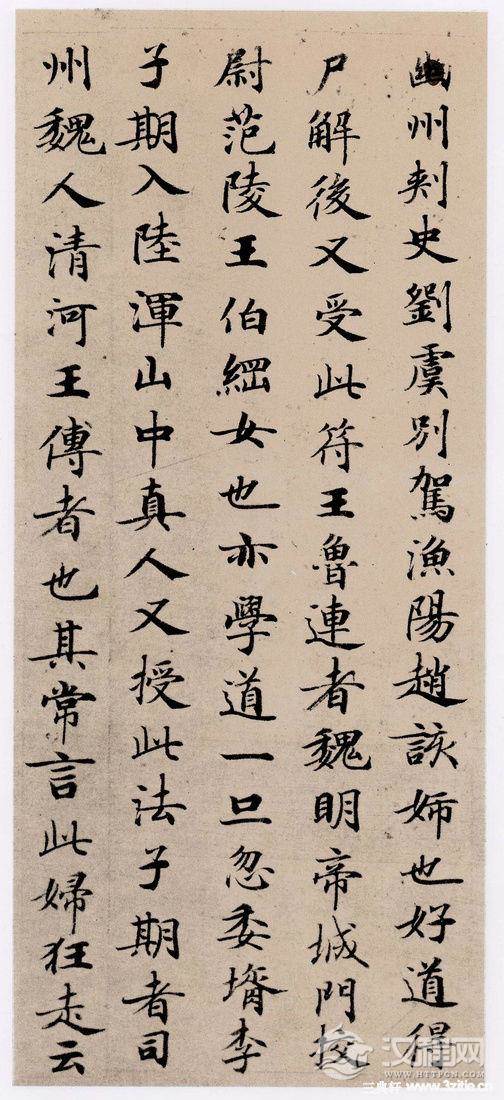 幽州刾史劉虞別駕漁陽趙該姊也好道得
尸解後又受此符王魯連者魏明帝城門挍
尉范陵王伯綱女也亦學道一旦忽委壻李
子期入陸渾山中真人又授此法子期者司
州魏人清河王傅者也其常言此婦狂走云
汉程网
HTTPCN.COM
www.3zitie.cn